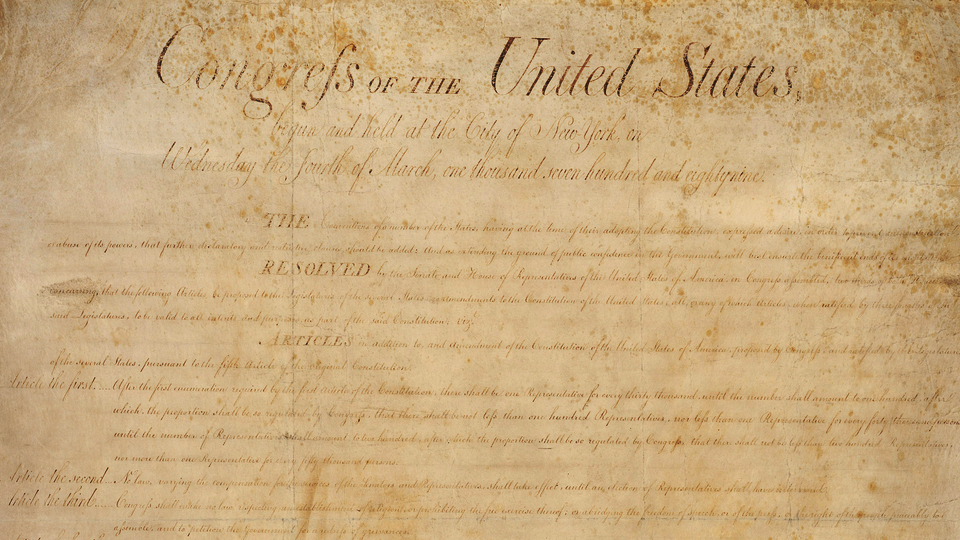 Congreſs OF THE United States,
begun and held at the City of New York, on
Wednesday the Fourth of March, one thousand seven hundred and eighty nine.
THE Conventions of a number of the States, having at the time of their adopting the Constitution, expressed a desire, in order to prevent
or abuse of its powers, that further declaratory and restrictive clauses should be added: And as extending the ground of public confidence in the Government, will best insure the beneficent ends of
RESOLVED by the Senate and House of Representatives of the United States of America, in Congreſs aſsembled, two thirds of both Houses
concurring, that the following Articles be proposed to the Legislatures of the several States, as amendments to the Constitution of the United States, all, or any of which Articles, when ratified by three fourths of
said Legislatures, to be valid to all intents and purposes, as part of the said Constitution; viz.
ARTICLES in addition to, and Amendment of the Constitution of the United States of America, proposed by Congreſs, and ratified by the Legislatures
of the several States, pursuant to the fifth Article of the Original Constitution.
Article the first.... After the first enumeration required by the first Article of the Constitution, there shall be one Representative for every thirty thousand, until the number shall amount to one hundred, after
which, the proportion shall be so regulated by Congreſs, that there shall be not leſs than one hundred Representatives, nor leſs than one Representative for every forty thousand persons,
until the number of Representatives shall amount to two hundred, after which the proportion shall be so regulated by Congreſs, that there shall not be leſs than two hundred Representatives,
nor more than one Representative for every fifty thousand persons.
Article the second... No law, varying the compensation for the services of the Senators and Representatives, shall take effect, until an election of Representatives shall have intervened.
Article the third...... Congreſs shall make no law respecting an establishment of religion, or prohibiting the free exercise thereof; or abridging the freedom of speech, or of the preſs; or the right of the people peaceably to
aſsemble, and to petition the Government for a redreſs of grievances.